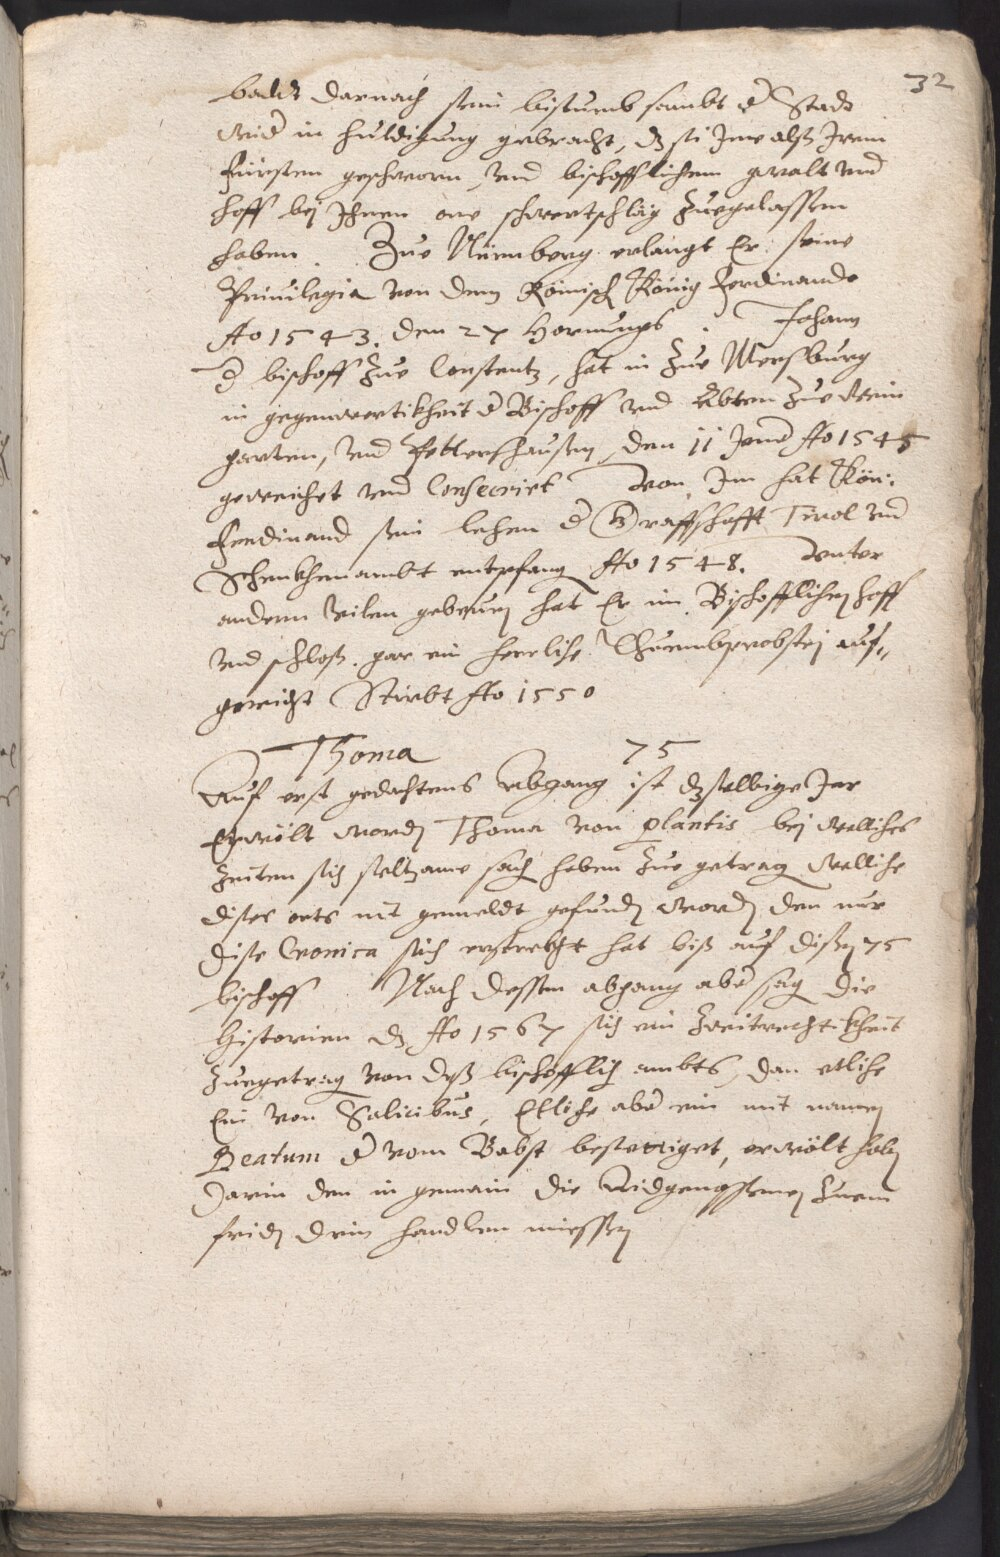 32
baldt darnach sein bistumb sambt d Stadt
wid in huldigung gebracht, dz sie Jme alß Jrem
fürsten geschworn, vnd bischofflichem gwalt vnd
hoff bej Jhnen one schwertschläg zuegelassen
haben. Zue Nürmberg erlangt Er seine
Priuilegia von dem Römisch König Ferdinando
Ao 1543. den 27 Hornungs. Johann
d bischoff zue Constentz, hat in zue Mersburg
in gegenwertikheit d Bischoff vnd Äbten zue Wein
garten, vnd Petterßhausen, den 11 Ao 1545
geweichet vnd Consecriert Von Jm hat Kön:
Ferdinand sein lehen d Graffschafft Tirol vnd
Schenkhenambt entpfang Ao 1548. Vnter
andern vilen gebeuen hat Er im Bischofflichen hoff
vnd schloß gar ein herrliche Thuembprobstej auf„
gericht Stirbt Ao 1550
Thoma 75
Auf erst gedachtens Abgang ist dzselbige Jar
Erwölt word Thoma von plantis bej welliches
Zeiten sich seltzame sach haben zue getrag welliche
dises orts nit gemeldt gefund word, den nur
dise Cronica sich erstrekht hat biß auf disen 75
bischoff Nach dessen abgang abe sag die
Historien dz Ao 1567 sich ein zweitrechtikheit
zuegetrag von deß bischofflich ambts, dan etliche
Ein von Salicibus, Etliche abe ein mit namen
Beatum d vom Babst bestettiget, erwölt haben
Darin den in gemain die Aidgenossenen zuem
frid drin handlen miessen